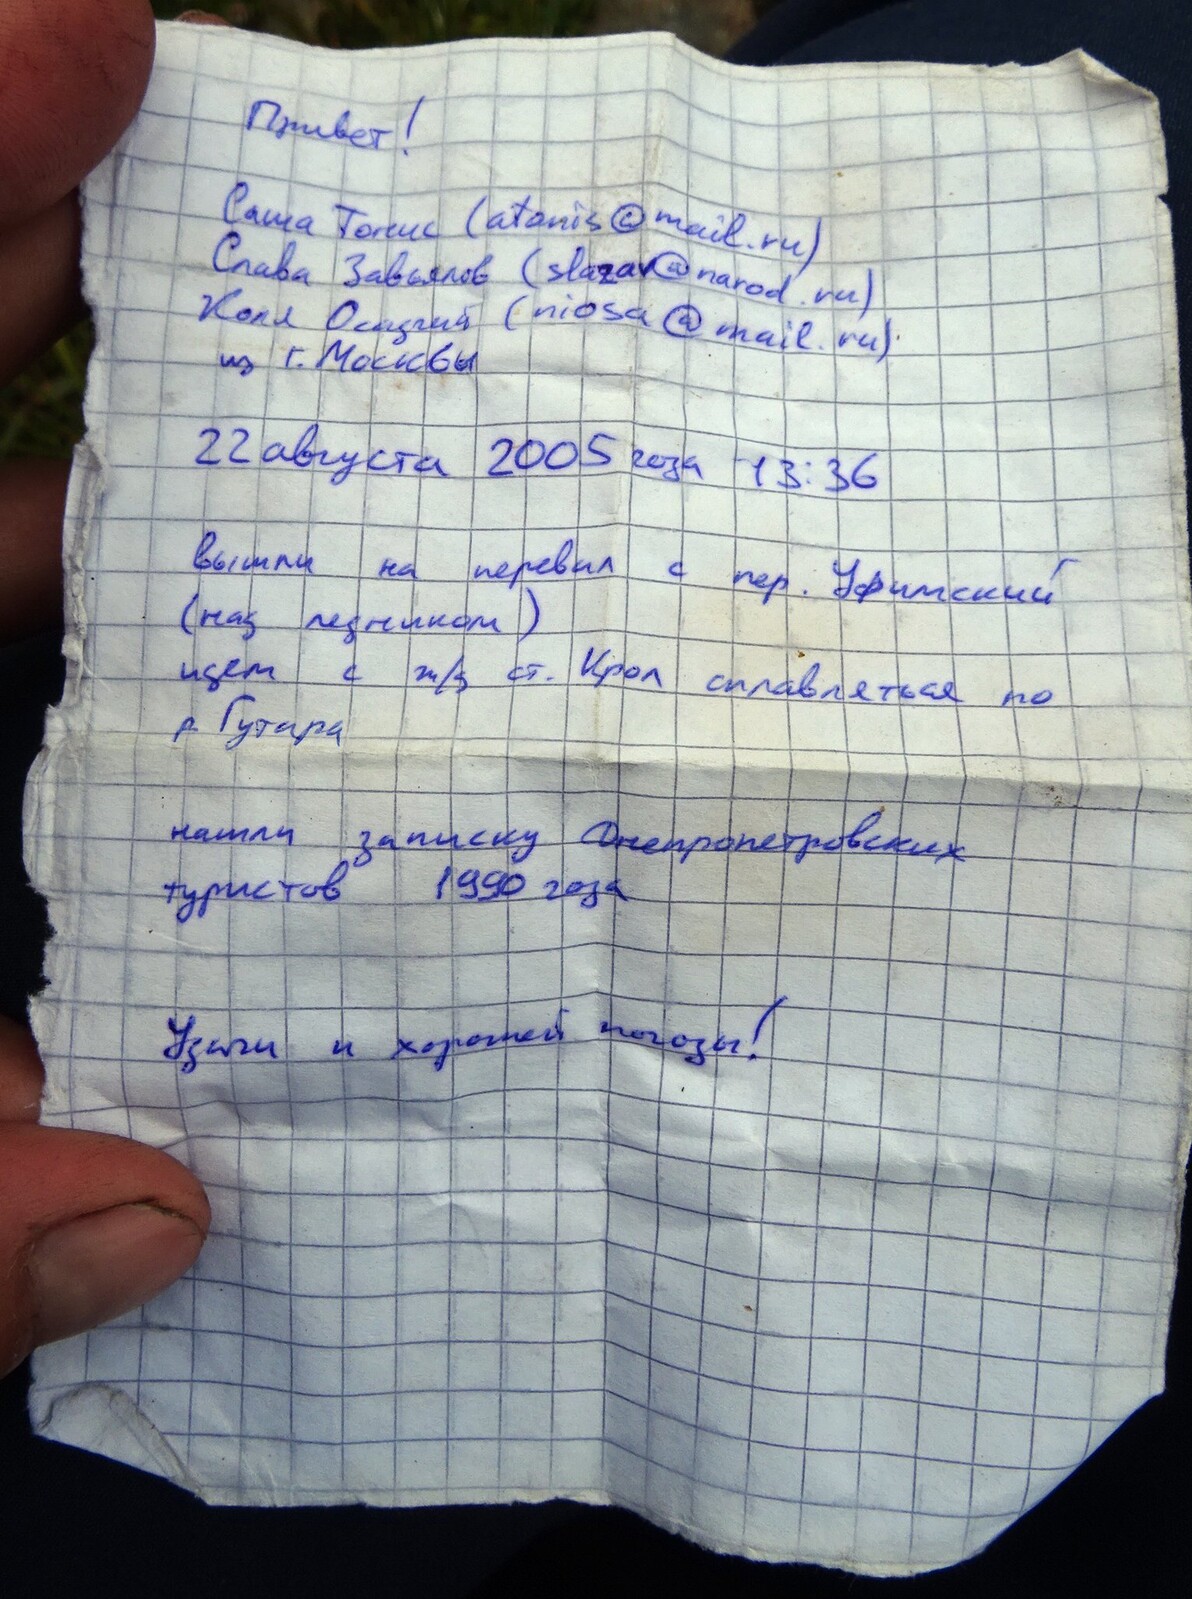 Привет!
Саша Тонис (atonis@mail.ru)
Слава Завьялов (slazav@narod.ru)
Коля Осадчий (niosa@mail.ru)
из г. Москвы
22 августа 2005 года 13:36
вышли на перевал с пер. Уфимский
(над ледником)
идем с ж/д ст. Крол сплавляться по
р Гутара
нашли записку Днепропетровских
туристов 1990 года
Удачи и хорошей погоды!